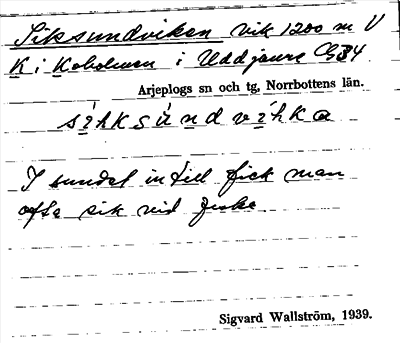 Siksundviken vik 1200 m V
K i Koholmen i Uddjaure G34
Arjeplogs sn och tg, Norrbottens län.
sìhksúndvìhka
I sundet intill fick man
ofta sik vid fiske.
Sigvard Wallström, 1939.